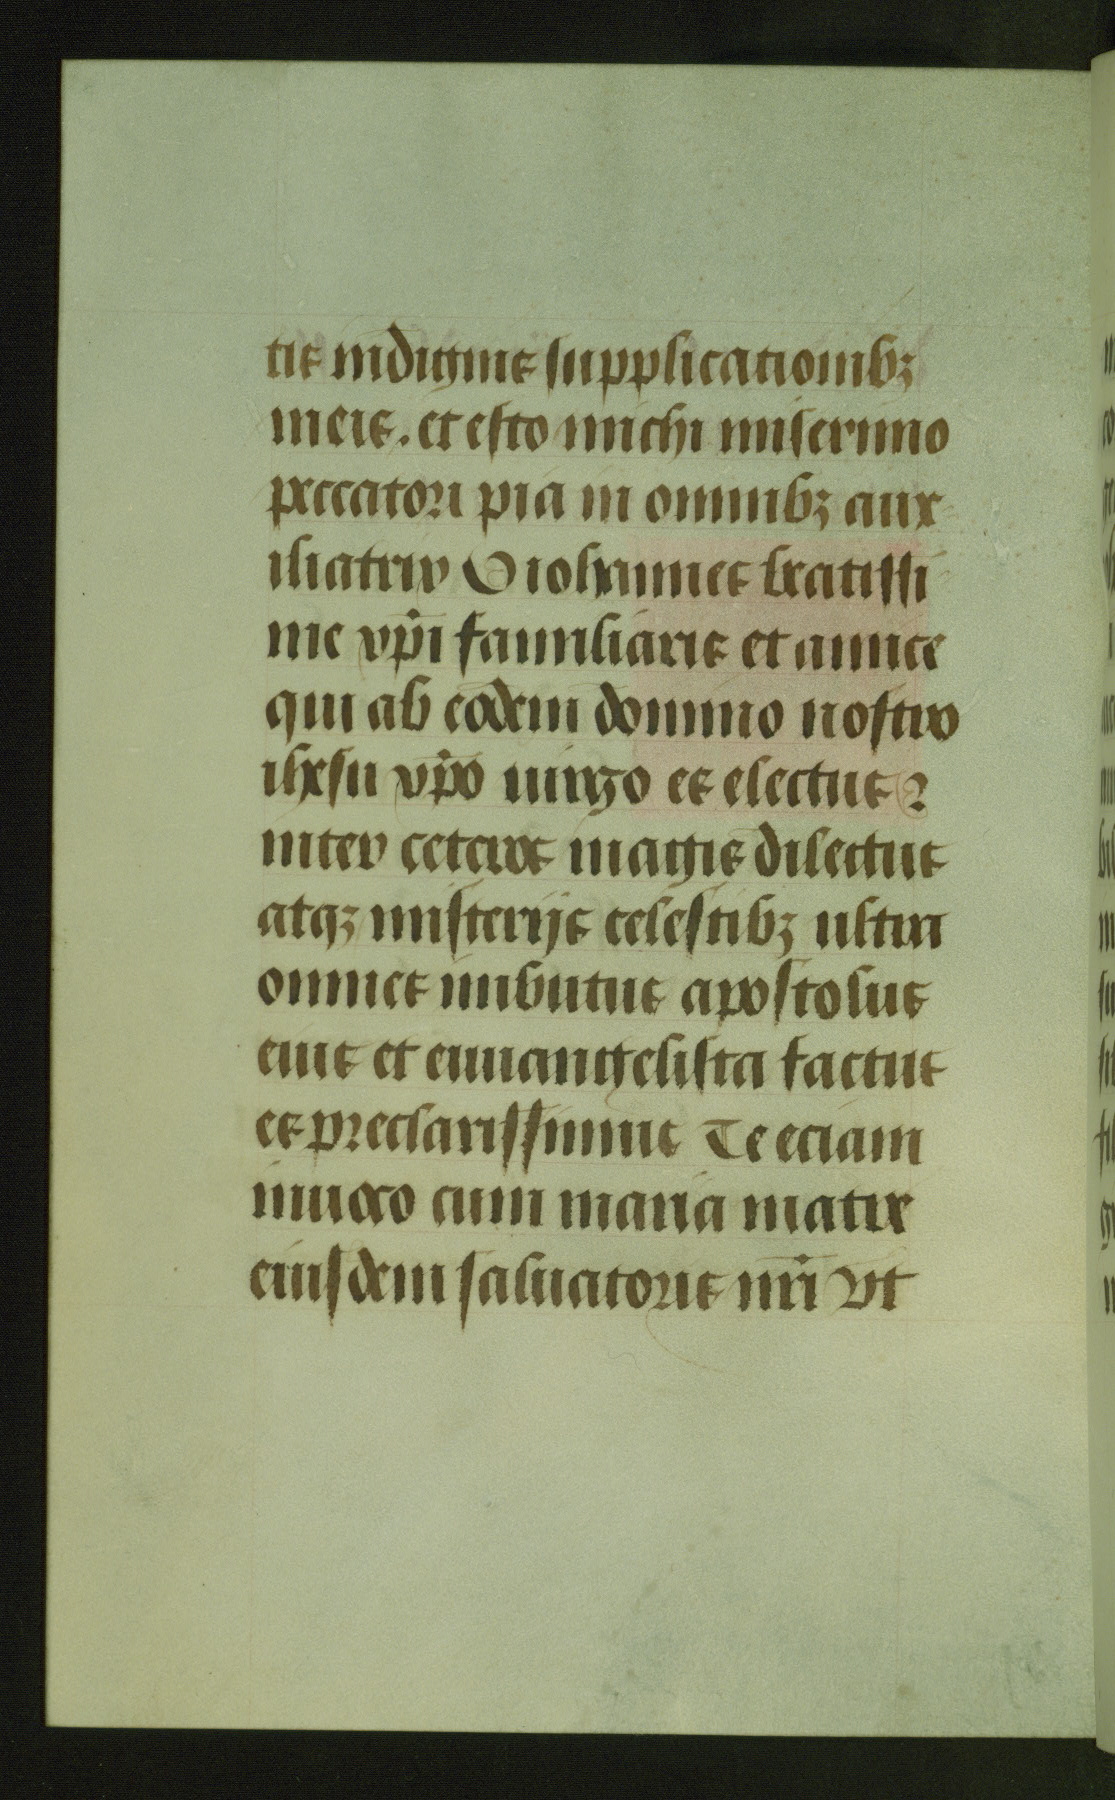 tis indignis supplicationibꝫ
meis. et esto michi miserimo
peccatori pia in omnibꝫ aux
iliatrix O iohannes beatissi
me xp̄i familiaris et amice
qui ab eodem domino nostro
ihesu xp̄o uirgo es electus ⁊
inter ceteros magis dilectus
atqꝫ misterijs celestibꝫ ultra
omnes imbutus apostolus
eius et euuangelista factus
es preclarissimus Te eciam
inuoco cum maria matre
eiusdem saluatoris nr̄i vt